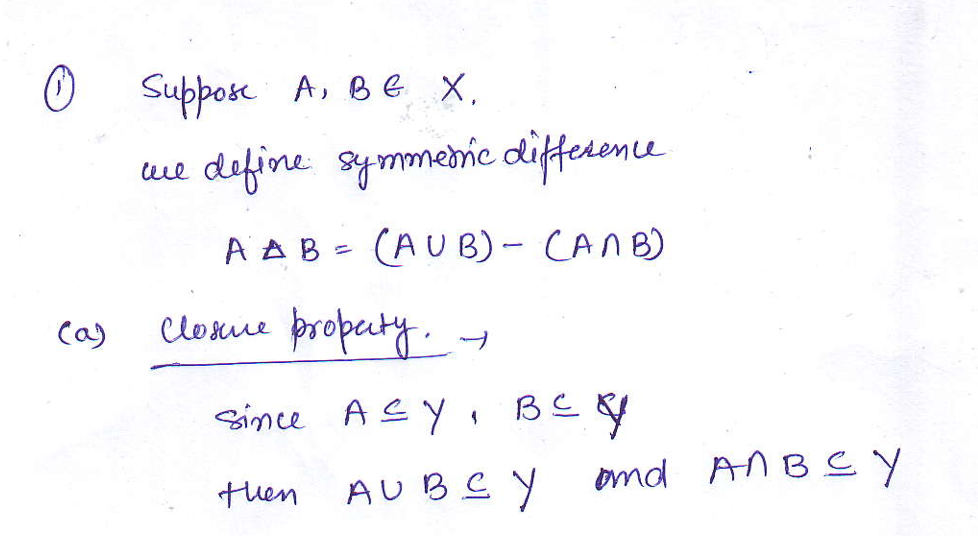 ① Suppose A, B ∈ X.
we define symmetric difference
A Δ B = (A ∪ B) - (A ∩ B)
(a) Closure property. →
since A ⊆ Y, B ⊆ Y
then A ∪ B ⊆ Y and A ∩ B ⊆ Y